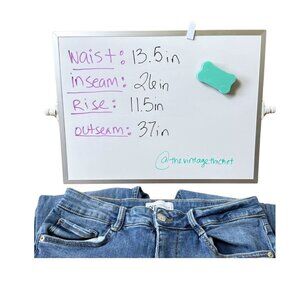 Waist: 13.5in
inseam: 26in
Rise: 11.5in
outseam: 37in
@thevintagethicket